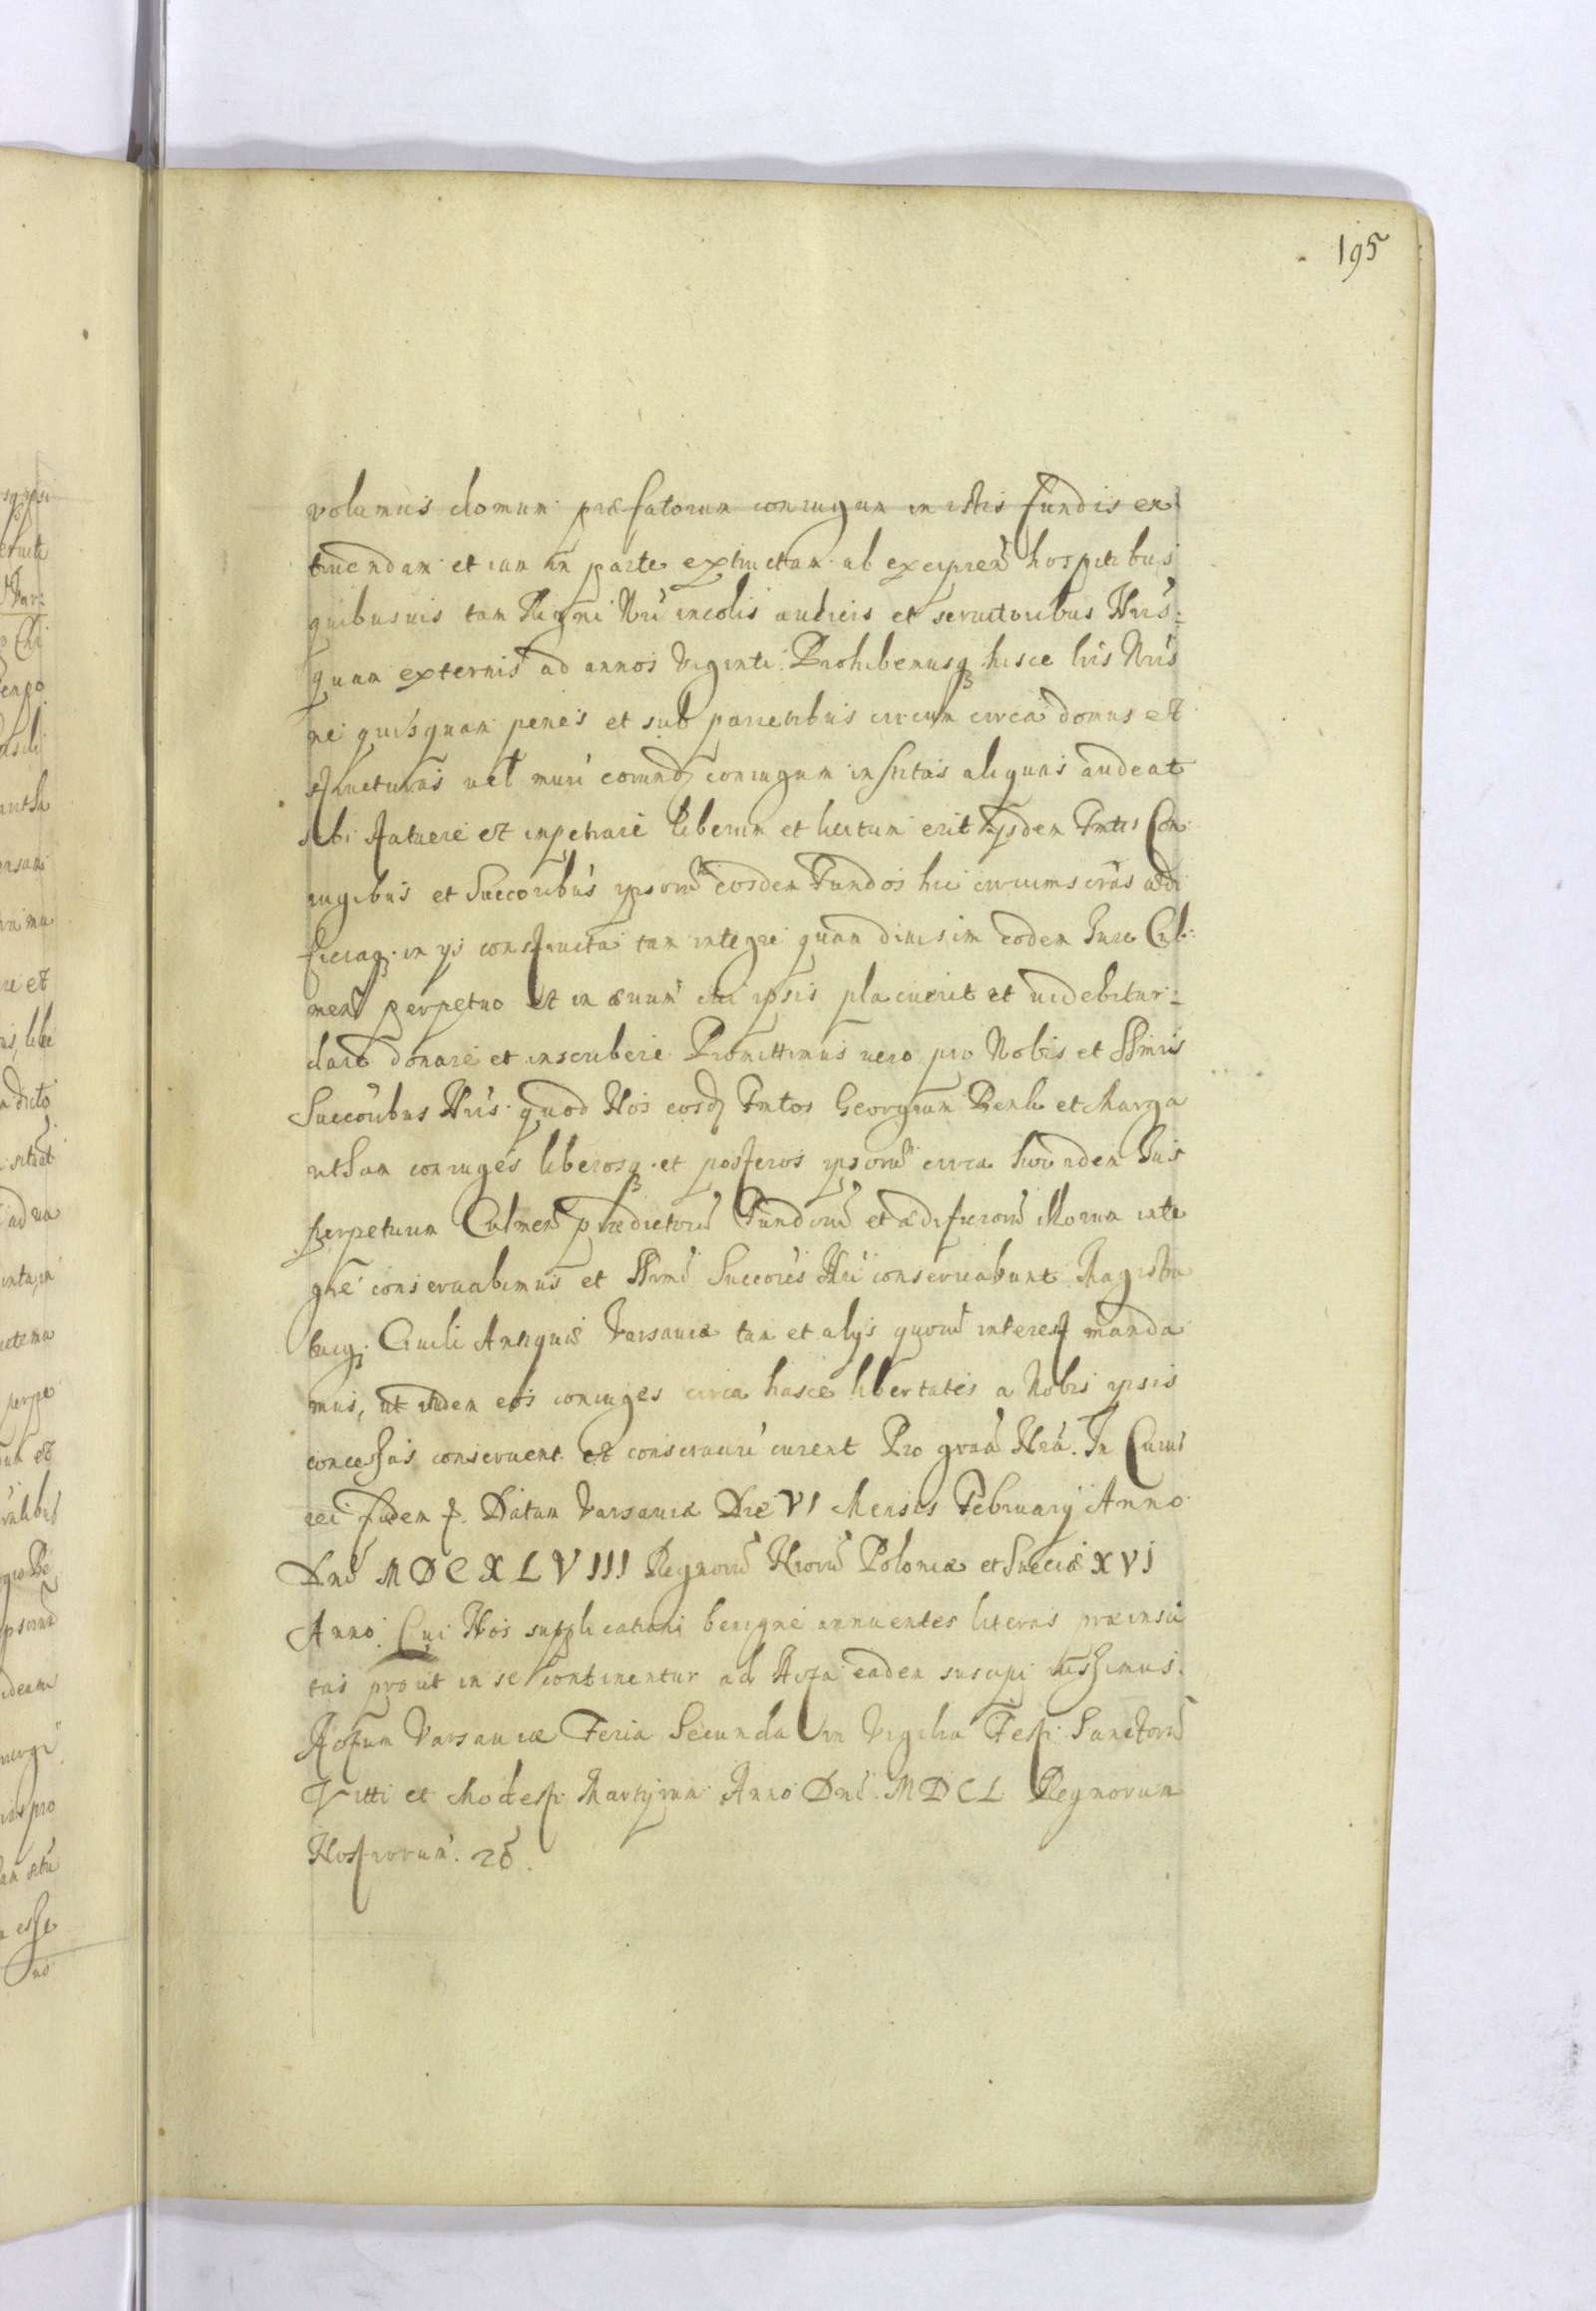 195
volumus domum præfatorum coniugum in istis fundis ex
truendam et iam in parte extructam ab excipien̄ hospitibus
quibusuis tam Regni Nr̄i incolis aulicis et seruitoribus Nr̄is
quam externis ad annos viginti. Prohibemusq hisce lr̄is Nr̄is
ne quisquam penes et sub parietibus circum circa domus et
structuras vel muri eorund coniugum institas aliquas audeat
sibi statuere et impetrare liberum et licitum erit ijsdem Fmtis Con
iugibus et Succoribus ipsorū eosdem Fundos hic circumscr̄as ædi
ficiaq. in ijs constructa tam integre quam diuisim eodem Iure Cul
men̄ perpetuo et in æuum cui ipsis placuerit et uidebitur
dare donare et inscribere Promittimus uero pro Nobis et Sr̄mis
Succoribus Nr̄is quod Nos eosd Fmtos Georgium Benk et Marga
retham coniuges liberosq. et posteros ipsorū circa hocce idem Ius
perpetuum Culmen̄ prædictorū Fundorū et ædificiorū illorum inte
gre conseruabimus et Srmi Succores Nr̄i conseruabunt Magistra
tuiq. Ciuili Antiquæ Varsauiæ tam et alijs quorū interest manda
mus, ut eidem eos coniuges circa hasce libertates a Nobis ipsis
concessas conseruent et conseruari curent Pro gra̅a Nr̄a. In Cuius
rei fidem f. Datum Varsauiæ Die VI Mensis February Anno
Dni MDCXLVIII Regnorū Nrorū Poloniæ et Sueciæ XVI
Anno. Cui Nos supplicationi benigne annuentes literas præinser
tas prout in se continentur ad Acta eadem suscipi iussimus.
Actum Varsauiæ Feria Secunda in Vigilia Festi Sanctorū
Vitti et Modesti Martyrum Anno Dni. MDCL Regnorum
Nostrorum. 2d.